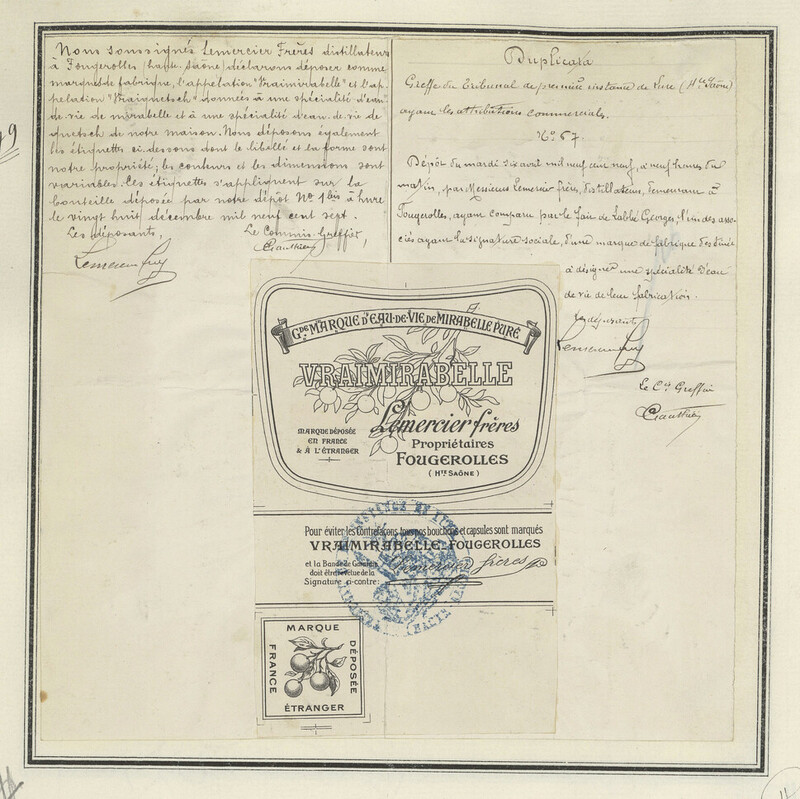 Nous soussignés Lemercier Frères distillateurs
à Fougerolles (haute-Saône) déclarons déposer comme
marques de fabrique, l'appelation "Vraimirabelle" et l'ap-
pelation "Vraiquetsch" données à une spécialité d'eau
de vie de mirabelle et à une spécialité d'eau de vie de
quetsch de notre maison. Nous déposons également
les étiquettes ci-dessous dont le libellé et la forme sont
notre propriété; les couleurs et les dimensions sont
variables. Ces étiquettes s'appliquent sur la
bouteille déposée par notre dépôt No 1 bis à Lure
le vingt huit décembre mil neuf cent sept.
Les déposants,
Le Commis-Greffier,
Lemercier
Gauthier
Duplicata
Greffe du Tribunal de première instance de Lure (Hte Saône)
ayant les attributions commerciales.
No 67
Dépôt du mardi six avril mil neuf cent neuf, à neuf heures du
matin, par Messieurs Lemercier frères, distillateurs, demeurant à
Fougerolles, ayant comparu par le sieur Labbé Georges, l'un des asso-
ciés ayant la signature sociale, d'une marque de fabrique destinée
à désigner une spécialité d'eau
de vie de leur fabrication.
Les déposants
Lemercier
Le Cis Greffier
Gauthier
Gde MARQUE D'EAU-DE-VIE DE MIRABELLE PURE
VRAIMIRABELLE
Lemercier frères
MARQUE DÉPOSÉE
EN FRANCE
& À L'ÉTRANGER
Propriétaires
FOUGEROLLES
(Hte SAÔNE)
Pour éviter les contrefaçons tous nos bouchons et capsules sont marqués
VRAIMIRABELLE-FOUGEROLLES
et la Bande de Garantie
doit être revêtue de la
Signature ci-contre:
Lemercier frères
MARQUE
DÉPOSÉE
FRANCE
ÉTRANGER